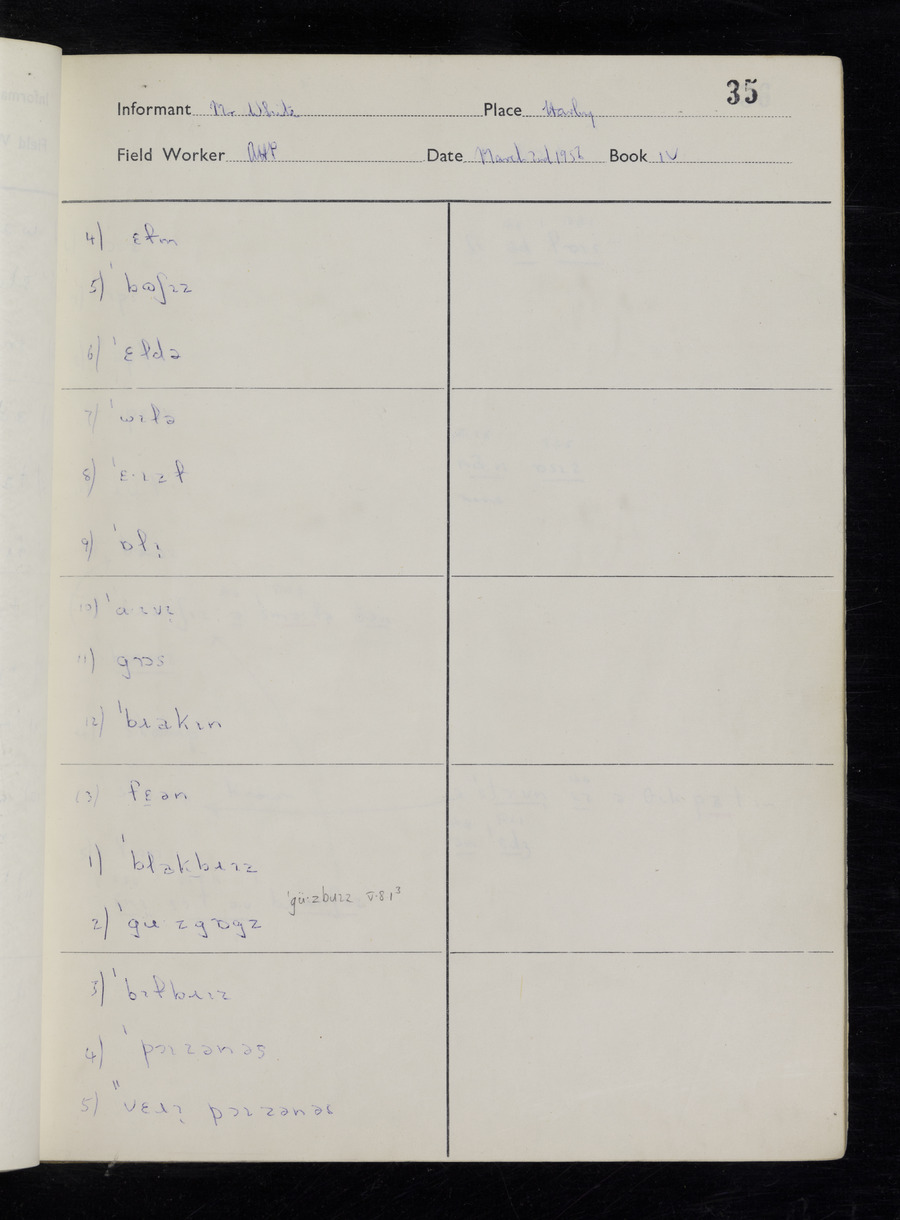 35
Informant Mr White Place Harby
Field Worker AHP Date March 2nd 1952 Book IV
4) ɛɫm
5) ˈbɷʃɪz
6) ˈɛɫdə
7) ˈwɪɫə
8) ˈɛˑɪzɫ
9) ˈɒlɪ̣
10) ˈaˑɪvɪ̣
11) gɔs
12) ˈbɹakɪn
13) fɛ̣ən
1) ˈblakbɹɪz
ˈgü:zbɹɪz V.8.1³
2) ˈgu·zgɒgz
3) ˈbɪɫbɹɪz
4) ˈpɔɪzənəs
5) ˈˈvɛɹɪ̣ pɔɪzənəs